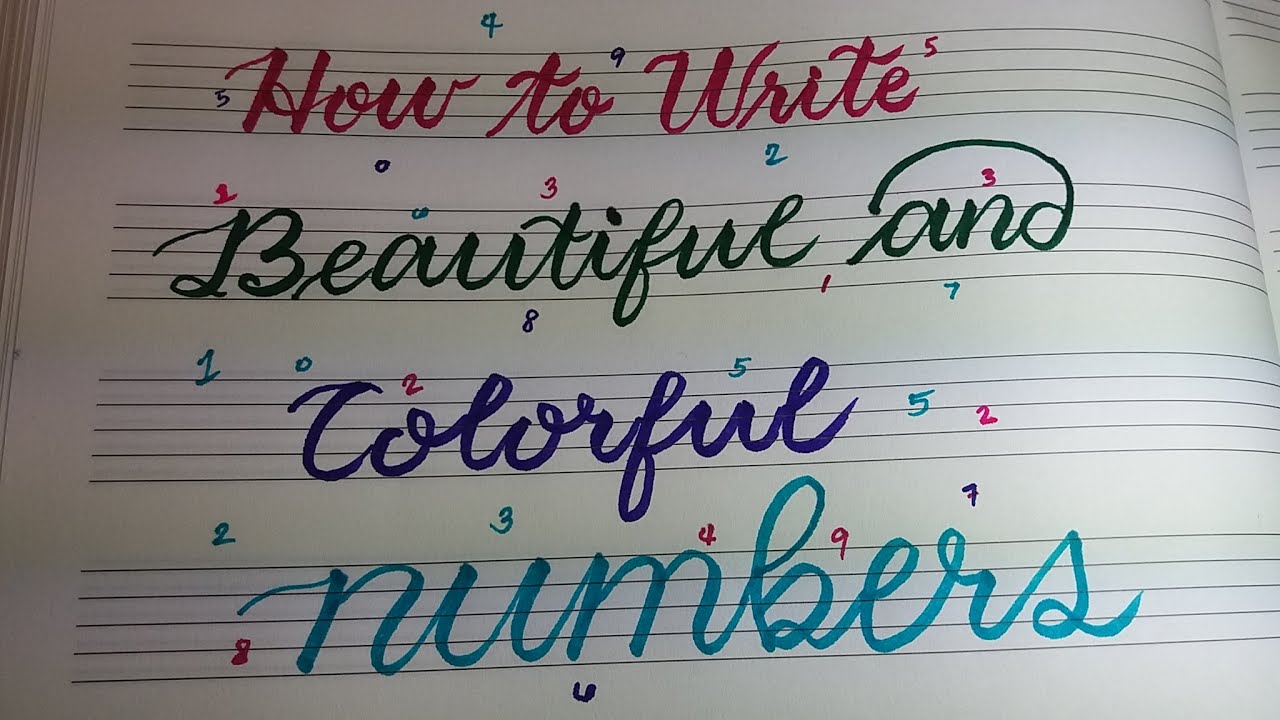 4
How to Write
5 9 5
0 2
2 3 3
Beautiful and
0
1 7
8
1 0 2 5
Colorful
5 2
7
2 3 4 9
numbers
8
6